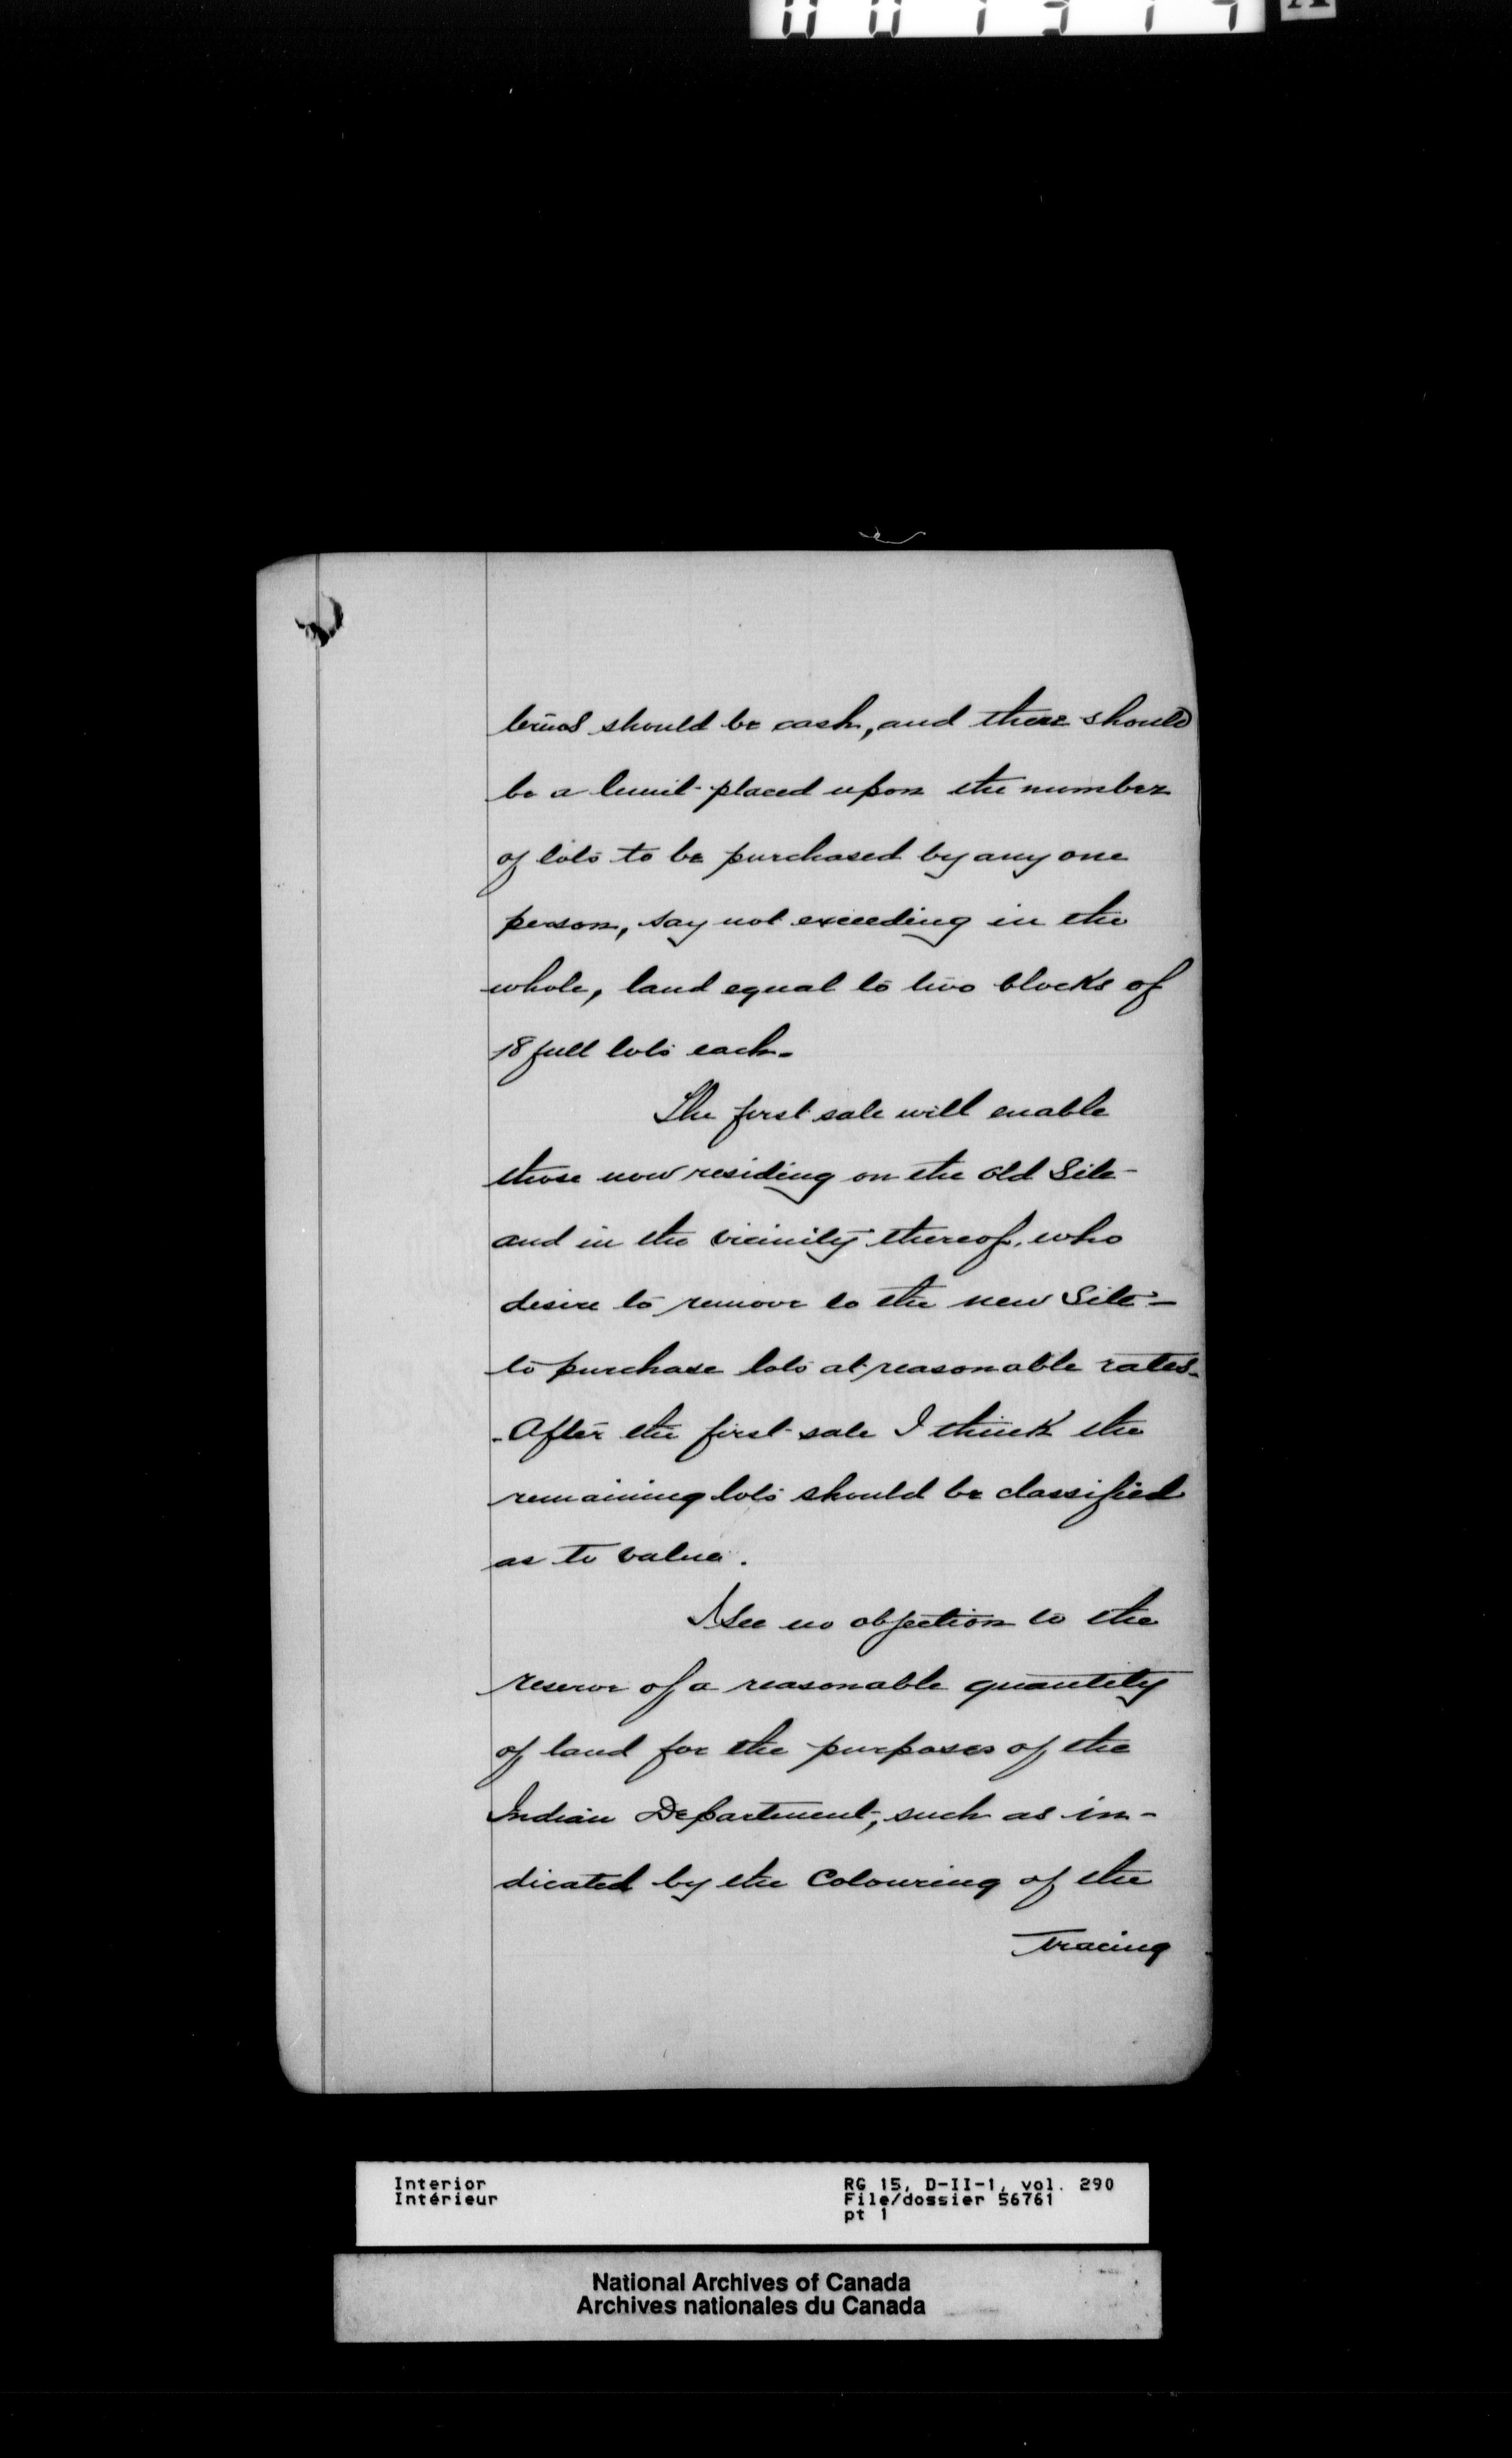 terms should be cash, and there should
be a limit placed upon the number
of lots to be purchased by any one
person, say not exceeding in the
whole, land equal to two blocks of
18 full lots each.
The first sale will enable
those now residing on the old Site
and in the vicinity thereof, who
desire to remove to the new Site -
to purchase lots at reasonable rates.
After the first sale I think the
remaining lots should be classified
as to value.
I see no objection to the
reserve of a reasonable quantity
of land for the purposes of the
Indian Department, such as in-
dicated by the Colouring of the
Tracing
Interior
Intérieur
RG 15, D-II-1, vol. 290
File/dossier 56761
pt 1
National Archives of Canada
Archives nationales du Canada